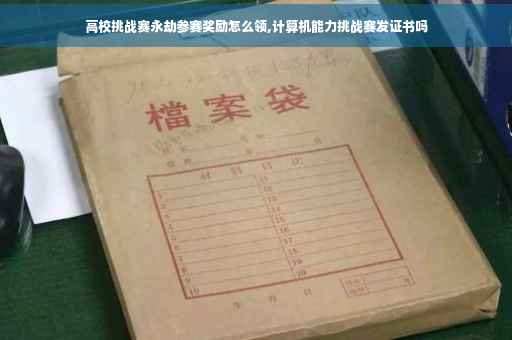 高校挑战赛永劫参赛奖励怎么领,计算机能力挑战赛发证书吗
檔案袋
材料目次
1 11
2 12
3 13
4 14
5 15
6 16
7 17
8 18
9 19
10 20
年 月 日